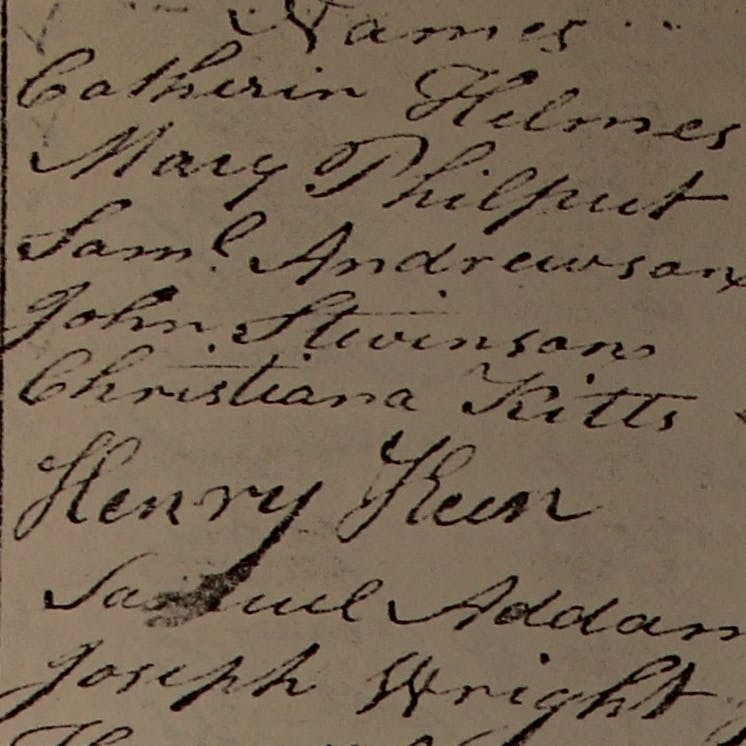 Names
Catherin Holmes
Mary Philput
Saml. Andrewson
John Stevinson
Christiana Kitts
Henry Keen
Samuel Addam
Joseph Wright